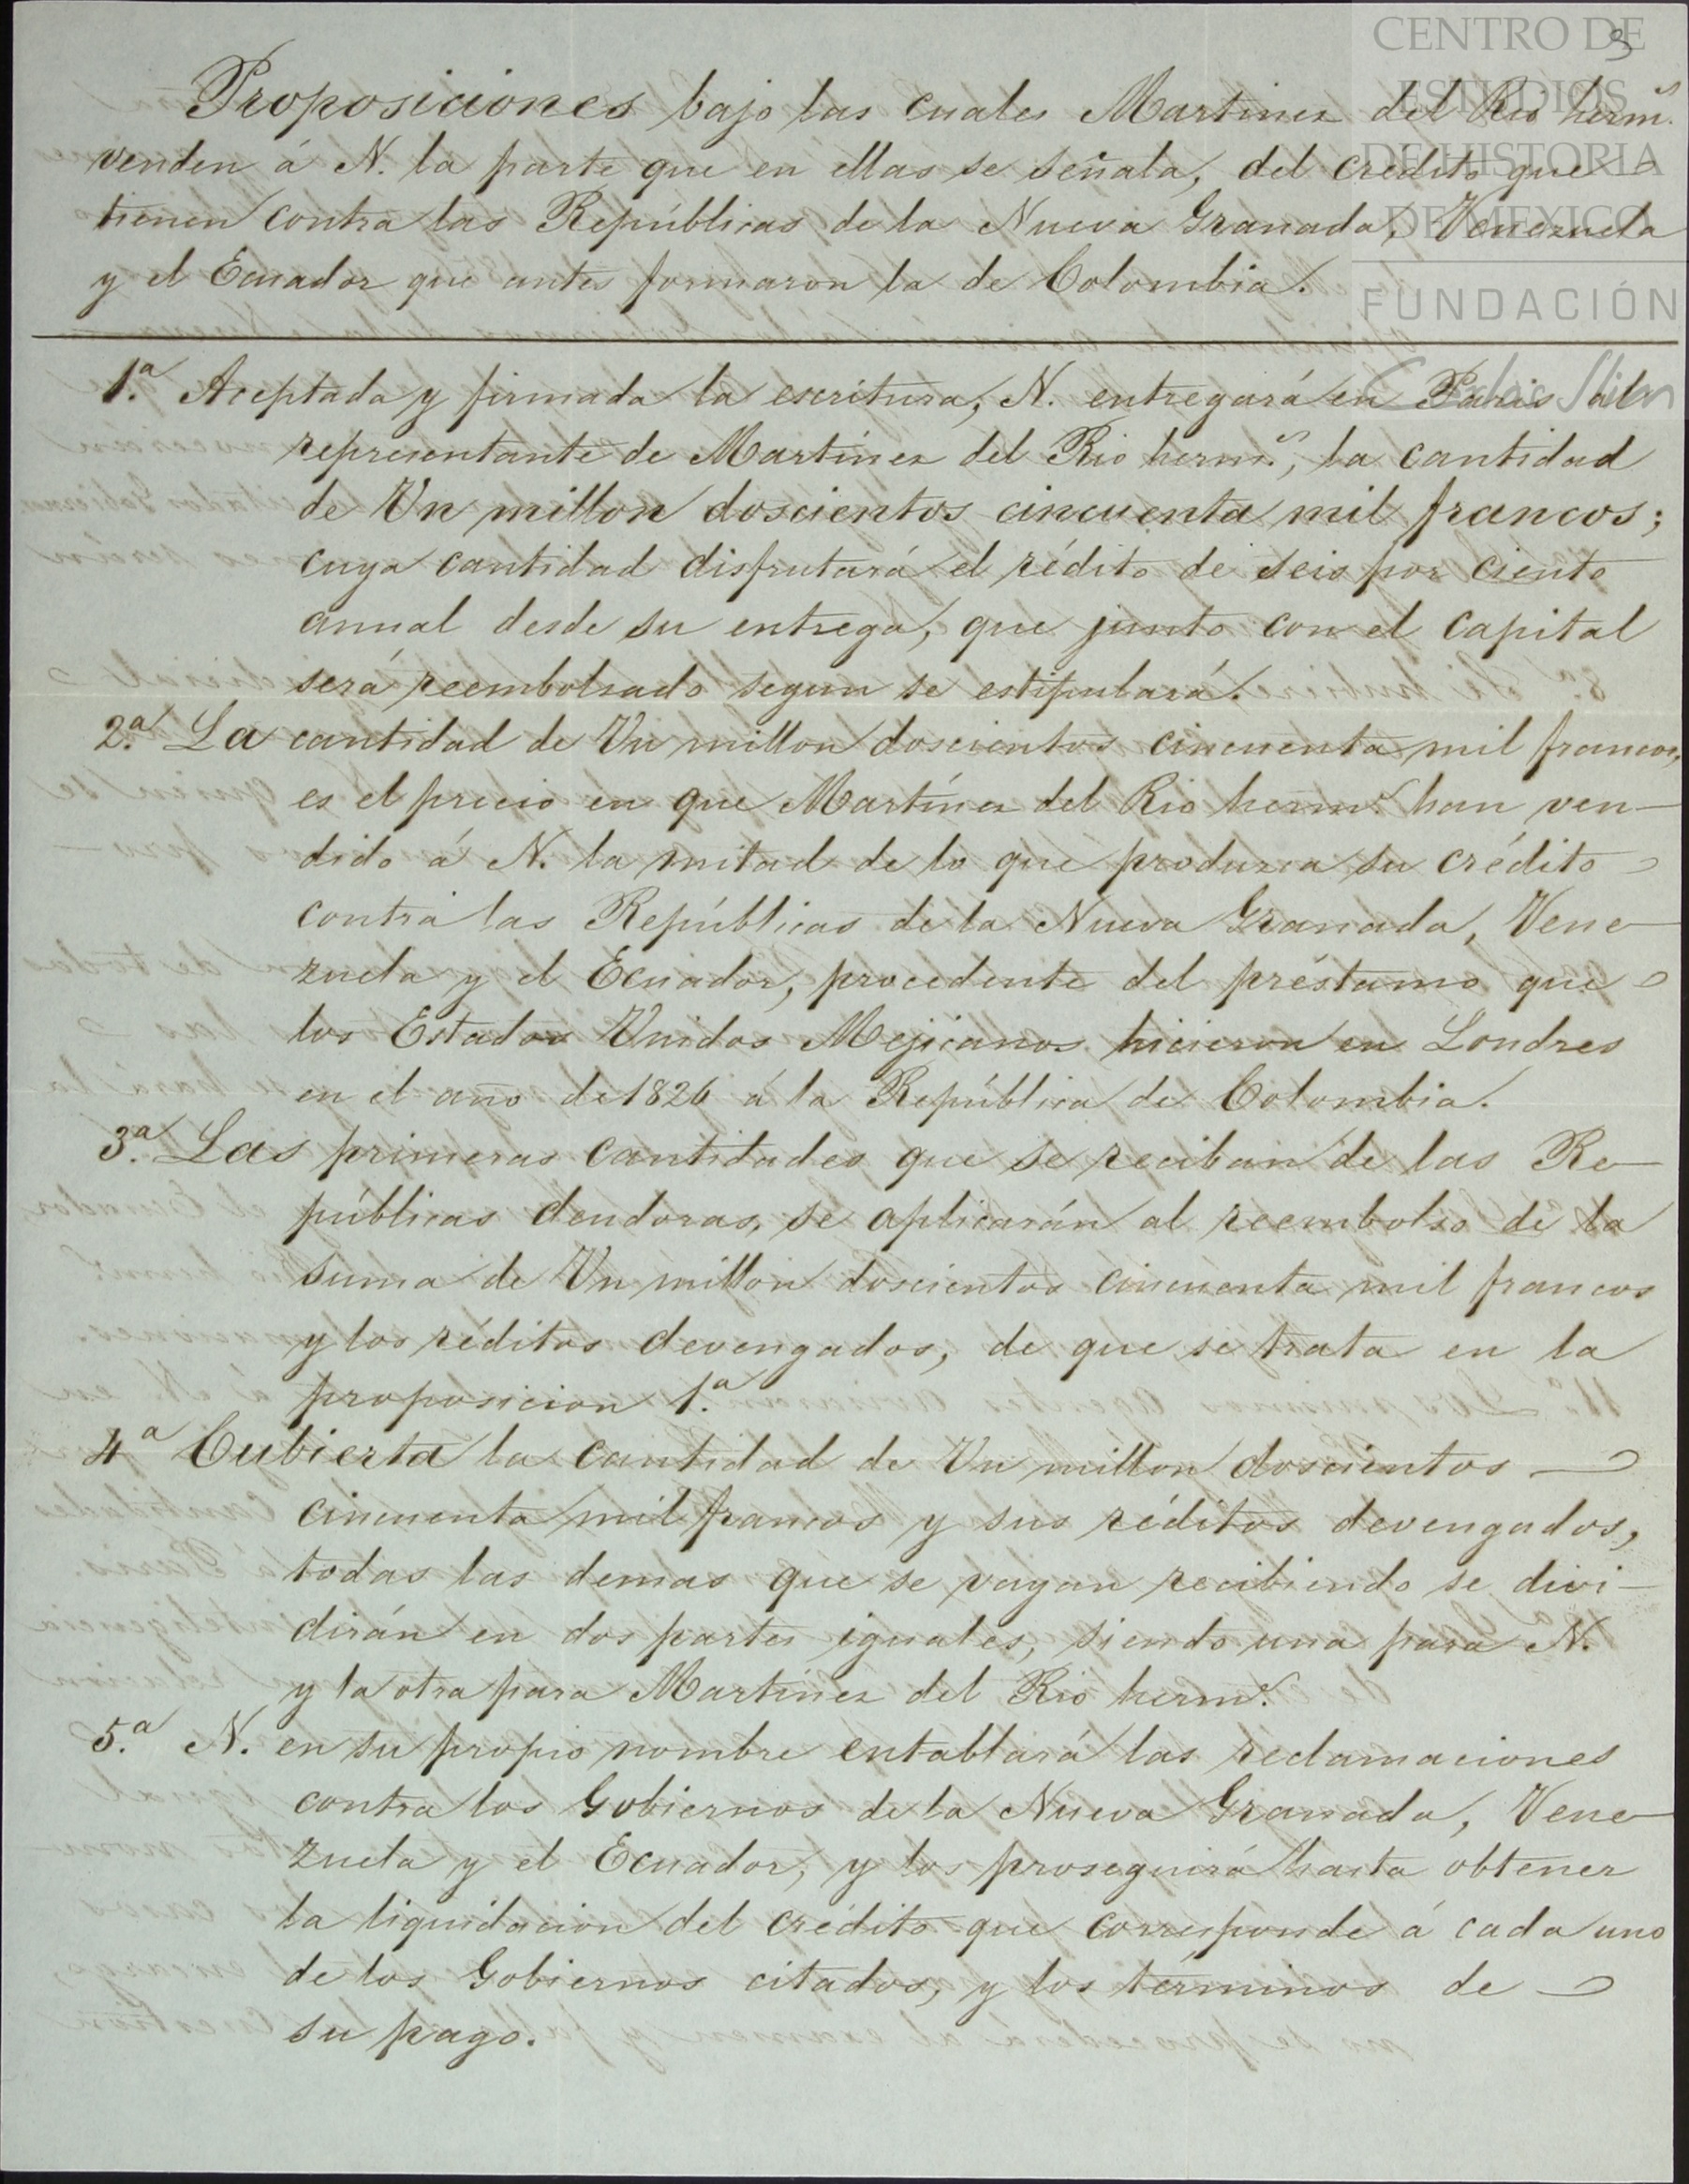 CENTRO DE
ESTUDIOS
DE HISTORIA
DE MEXICO
FUNDACIÓN
Carlos Slim
3
Proposiciones bajo las cuales Martinez del Rio herm.s
venden á N. la parte que en ellas se señala, del crédito que
tienen contra las Repúblicas de la Nueva Granada, Venezuela
y el Ecuador que antes formaron la de Colombia.
1.a Aceptada y firmada la escritura, N. entregará en Paris al
representante de Martínez del Rio herm.s, la cantidad
de Un millon doscientos cincuenta mil francos;
cuya cantidad disfrutará el rédito de seis por ciento
annal desde su entrega, que junto con el capital
será reembolsado segun se estipulará.
2.a La cantidad de Un millon doscientos cincuenta mil francos,
es el precio en que Martínez del Rio herm.s han ven-
dido á N. la mitad de lo que produzca su crédito
contra las Repúblicas de la Nueva Granada, Vene-
zuela y el Ecuador, procedente del préstamo que
los Estados Unidos Mejicanos hicieron en Londres
en el año de 1826 á la República de Colombia.
3.a Las primeras cantidades que se reciban de las Re-
públicas deudoras, se aplicarán al reembolso de la
suma de Un millon doscientos cincuenta mil francos
y los réditos devengados, de que se trata en la
proposicion 1.a
4.a Cubierta la cantidad de Un millon doscientos
cincuenta mil francos y sus réditos devengados,
todas las demas que se vayan recibiendo se divi-
dirán en dos partes iguales, siendo una para N.
y la otra para Martínez del Rio herm.s
5.a N. en su propio nombre entablará las reclamaciones
contra los Gobiernos de la Nueva Granada, Vene-
zuela y el Ecuador, y los proseguirá hasta obtener
la liquidacion del crédito que corresponde á cada uno
de los Gobiernos citados, y los términos de
su pago.